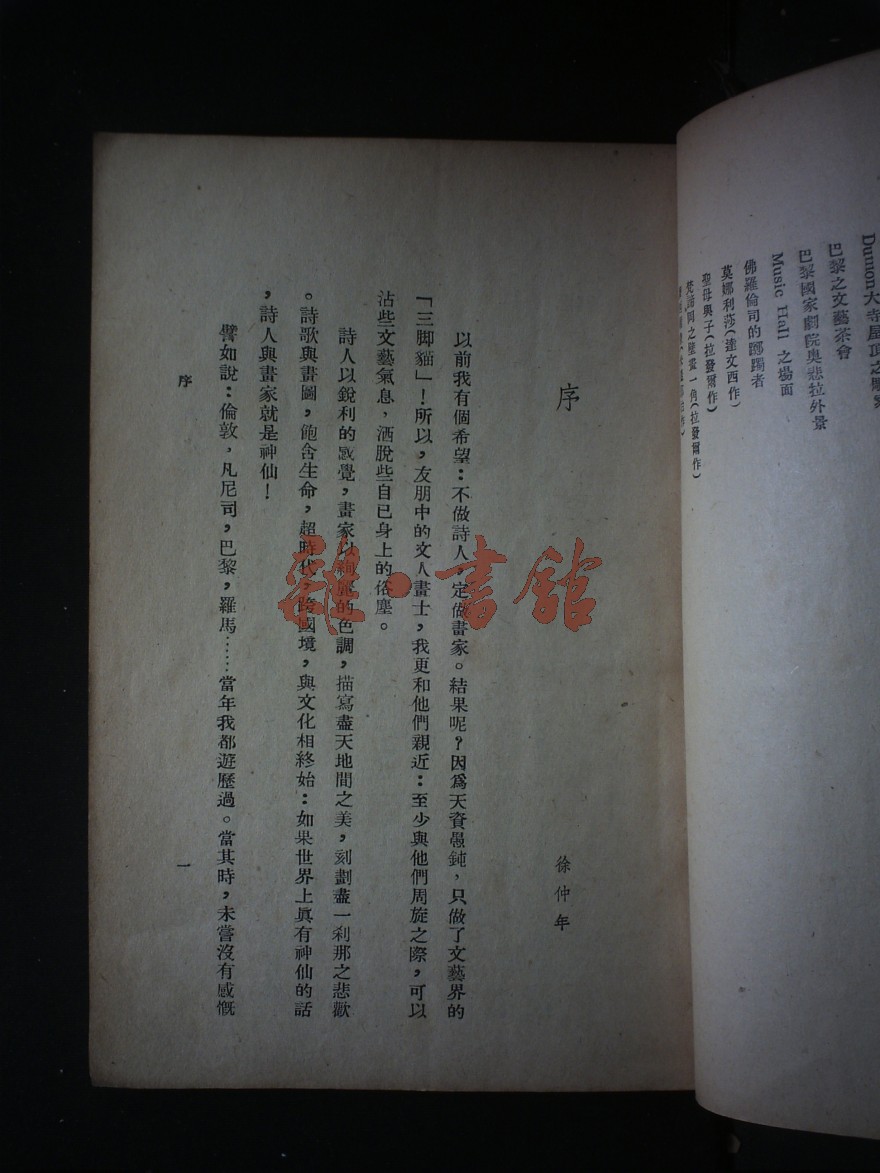 Dumon大寺屋頂之
巴黎之文藝茶會
巴黎國家劇院奧悲拉外景
Music Hall 之場面
佛羅倫司的躑躅者
莫娜利莎(達文西作)
聖母與子(拉發爾作)
之壁畫一角(拉發爾作)
序
徐仲年
以前我有個希望：不做詩人，定做畫家。結果呢？因爲天資愚鈍，只做了文藝界的
「三脚貓」！所以，友朋中的文人畫士，我更和他們親近：至少與他們周旋之際，可以
沾些文藝氣息，洒脫些自已身上的俗塵。
詩人以銳利的感覺，畫家以絢麗的色調，描寫盡天地間之美，刻劃盡一刹那之悲歡
。詩歌與畫圖，飽含生命，超時代，跨國境，與文化相終始：如果世界上眞有神仙的話
，詩人與畫家就是神仙！
譬如說：倫敦，凡尼司，巴黎，羅馬……當年我都遊歷過。當其時，未嘗沒有感慨
序
一
雜·書館